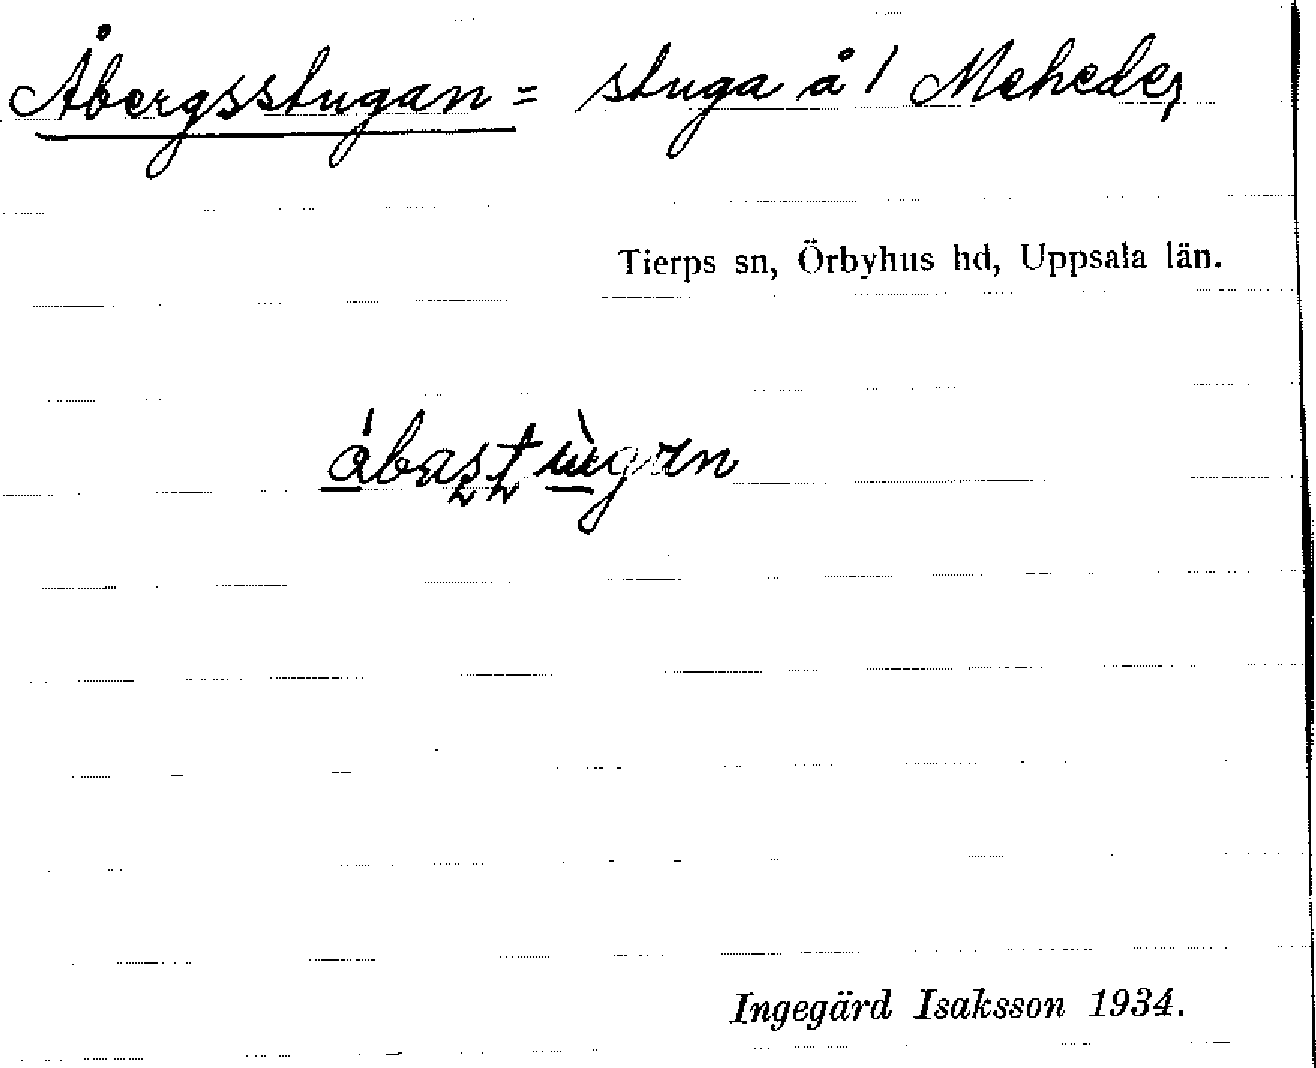 Åbergsstugan = stuga å / Mehede,
Tierps sn, Örbyhus hd, Uppsala län.
åbasstugan
Ingegärd Isaksson 1934.